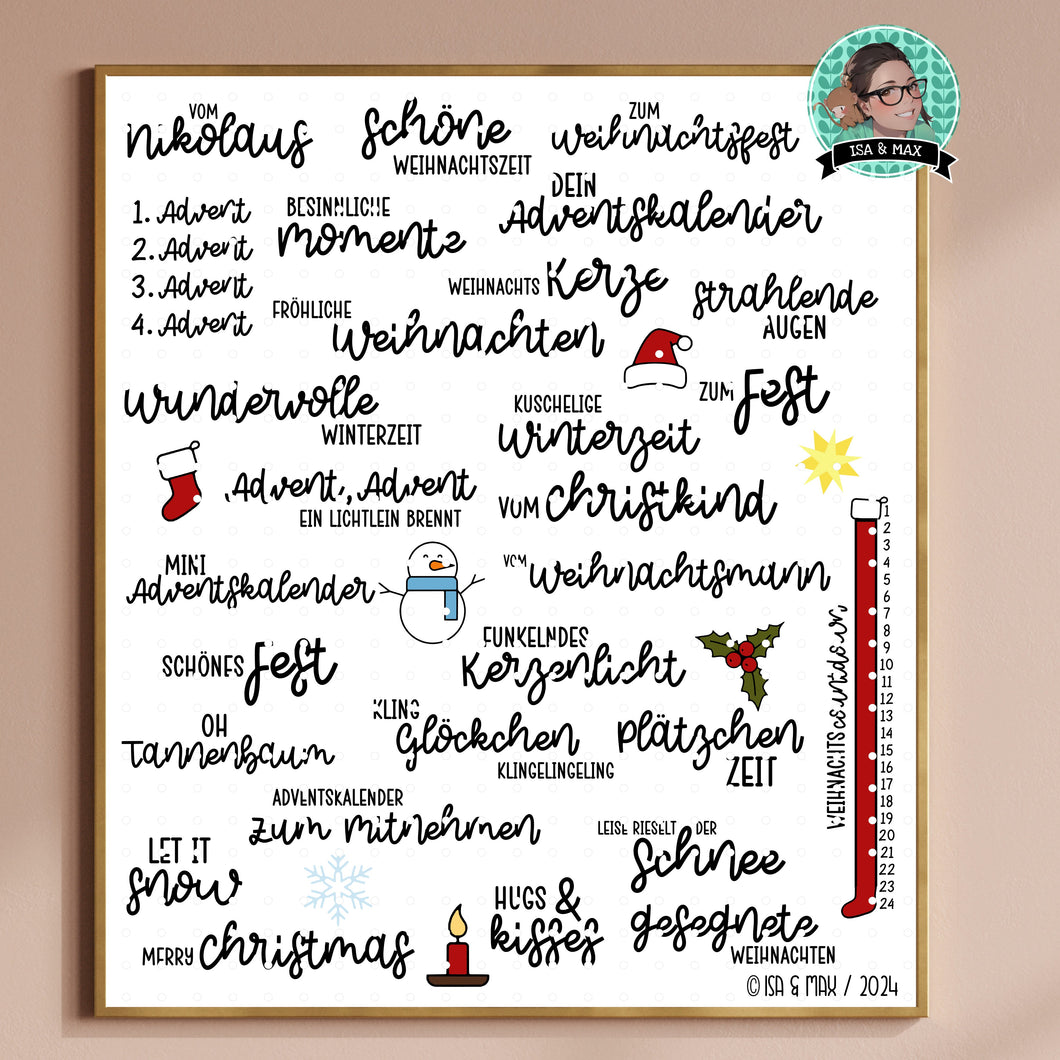 VOM
Nikolaus
Schöne
WEIHNACHTSZEIT
ZUM
Weihnachtsfest
ISA & MAX
1. Advent
2. Advent
3. Advent
4. Advent
BESINNLICHE
Momente
DEIN
Adventskalender
WEIHNACHTS Kerze
strahlende
AUGEN
FRÖHLICHE
Weihnachten
wundervolle
WINTERZEIT
KUSCHELIGE
Winterzeit
ZUM Fest
Advent, Advent
EIN LICHTLEIN BRENNT
VOM Christkind
MINI
Adventskalender
VOM Weihnachtsmann
SCHÖNES Fest
FUNKELNDES
Kerzenlicht
OH
Tannenbaum
KLING
Glöckchen
KLINGELINGELING
Plätzchen
ZEIT
WEIHNACHTSCOUNTDOWN
1
2
3
4
5
6
7
8
9
10
11
12
13
14
15
16
17
18
19
20
21
22
23
24
ADVENTSKALENDER
zum Mitnehmen
LET IT
snow
LEISE RIESELT DER
Schnee
MERRY Christmas
HUGS &
kisses
gesegnete
WEIHNACHTEN
© ISA & MAX / 2024